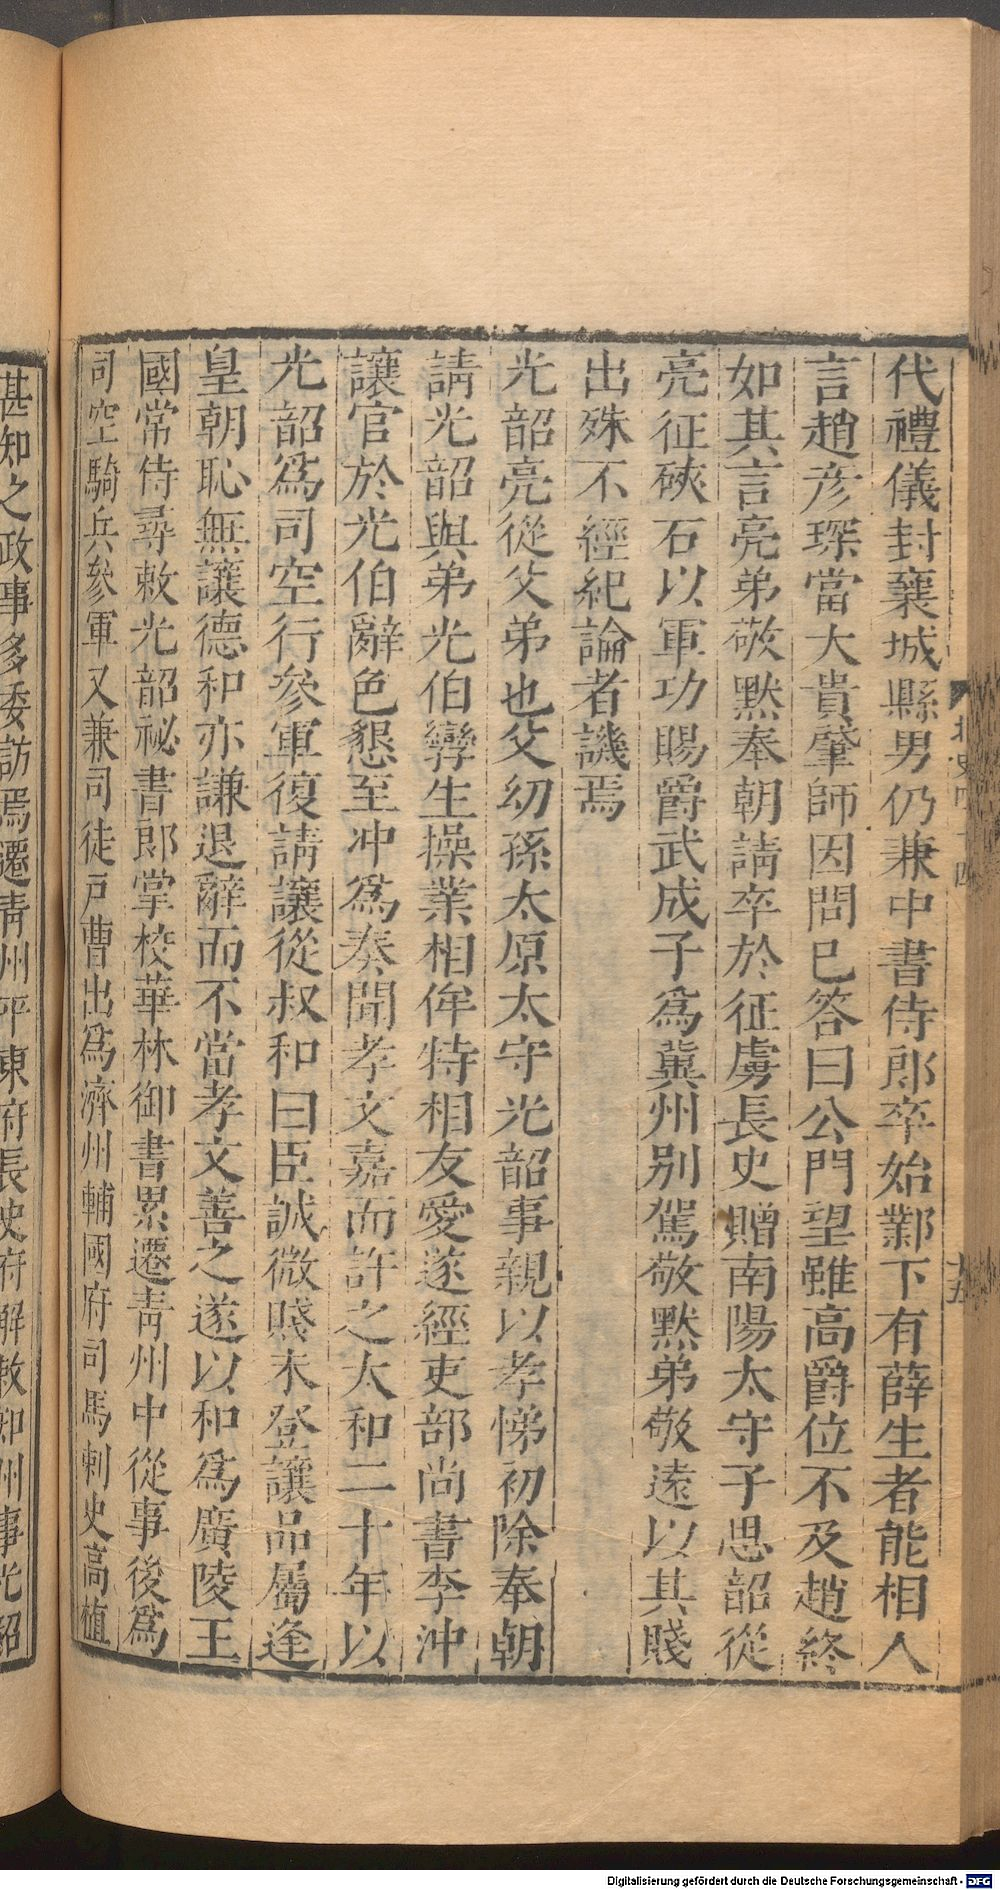 代禮儀封襄城縣男仍兼中書侍郎卒始鄴下有薛生者能相人
言趙彦琛當大貴肇師因問巳答曰公門望雖高爵位不及趙終
如其言亮弟敬默奉朝請卒於征虜長史贈南陽太守子思韶從
亮征硤石以軍功賜爵武成子爲冀州别駕敬默弟敬遠以其賤
出殊不經紀論者譏焉
光韶亮從父弟也父幼孫太原太守光韶事親以孝悌初除奉朝
請光韶與弟光伯孿生操業相侔特相友愛遂經吏部尚書李沖
讓官於光伯辭色懇至沖爲奏聞孝文嘉而許之太和二十年以
光韶爲司空行參軍復請讓從叔和曰臣誠微賤未登讓品屬逢
皇朝恥無讓德和亦謙退辭而不當孝文善之遂以和爲廣陵王
國常侍尋敕光韶祕書郎掌校華林御書累遷青州中從事後爲
司空騎兵參軍又兼司徒戸曹出爲濟州輔國府司馬刺史高植
甚知之政事多委訪焉遷青州平東府長史府解敕知州事光韶
北史四十四
十五
Digitalisierung gefördert durch die Deutsche Forschungsgemeinschaft - DFG